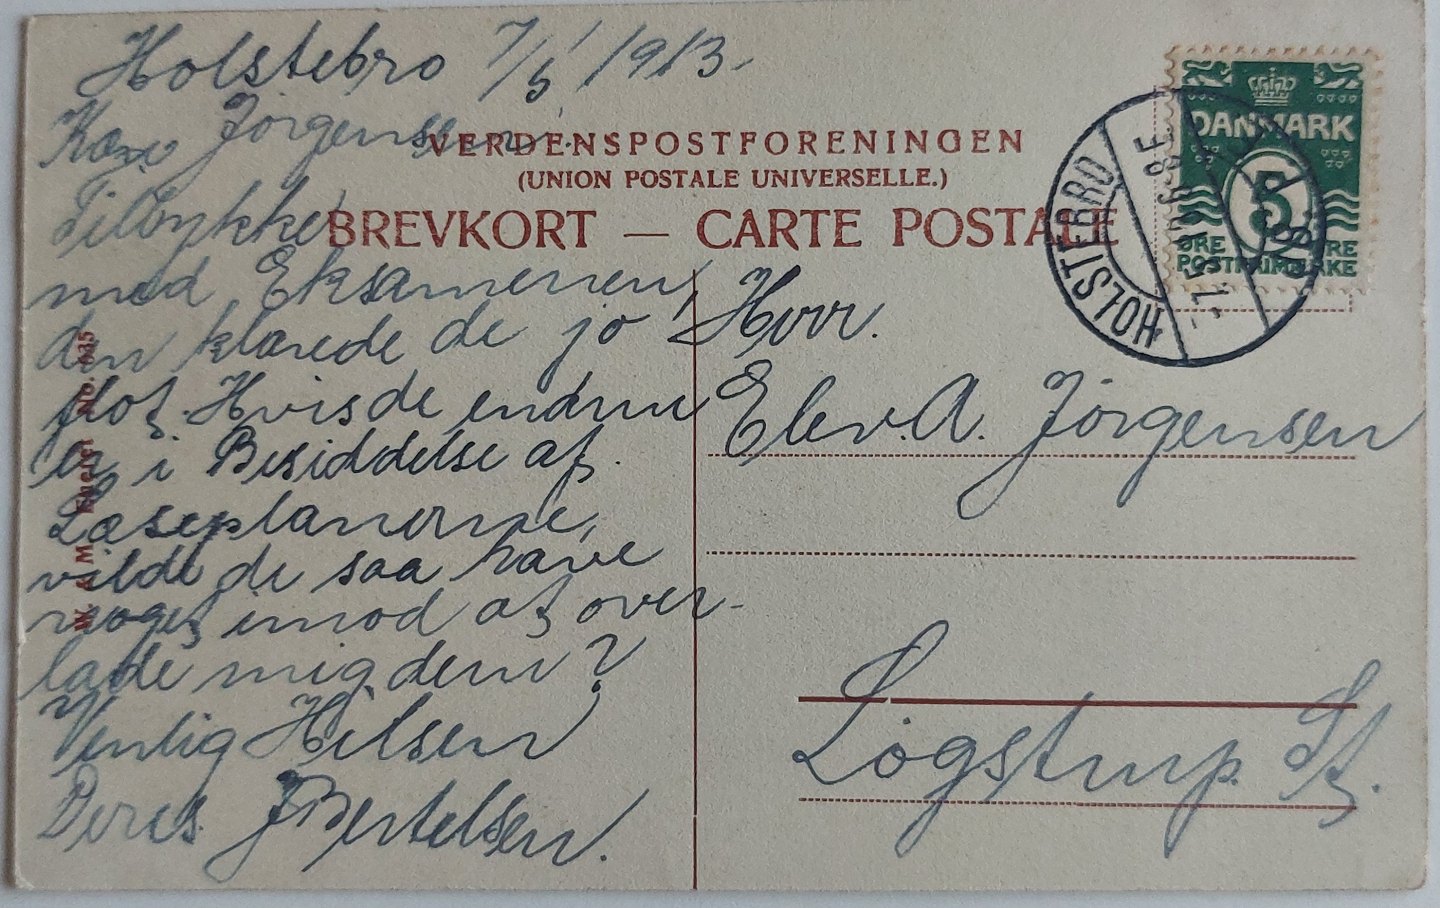 Holstebro 7/5 1913.
Kære Jørgensen!
Tillykke
med Eksamenen,
den klarede de jo
flot. Hvis de endnu
er i Besiddelse af
Læseplanerne,
vilde de saa have
noget imod at over-
lade mig dem?
Venlig Hilsen
Deres J Bertelsen.
VERDENSPOSTFORENINGEN
(UNION POSTALE UNIVERSELLE.)
BREVKORT — CARTE POSTALE
Herr.
Elev. A. Jørgensen
Løgstrup. St.
DANMARK
5
ØRE ØRE
POSTFRIMÆRKE
HOLSTEBRO
No. 635